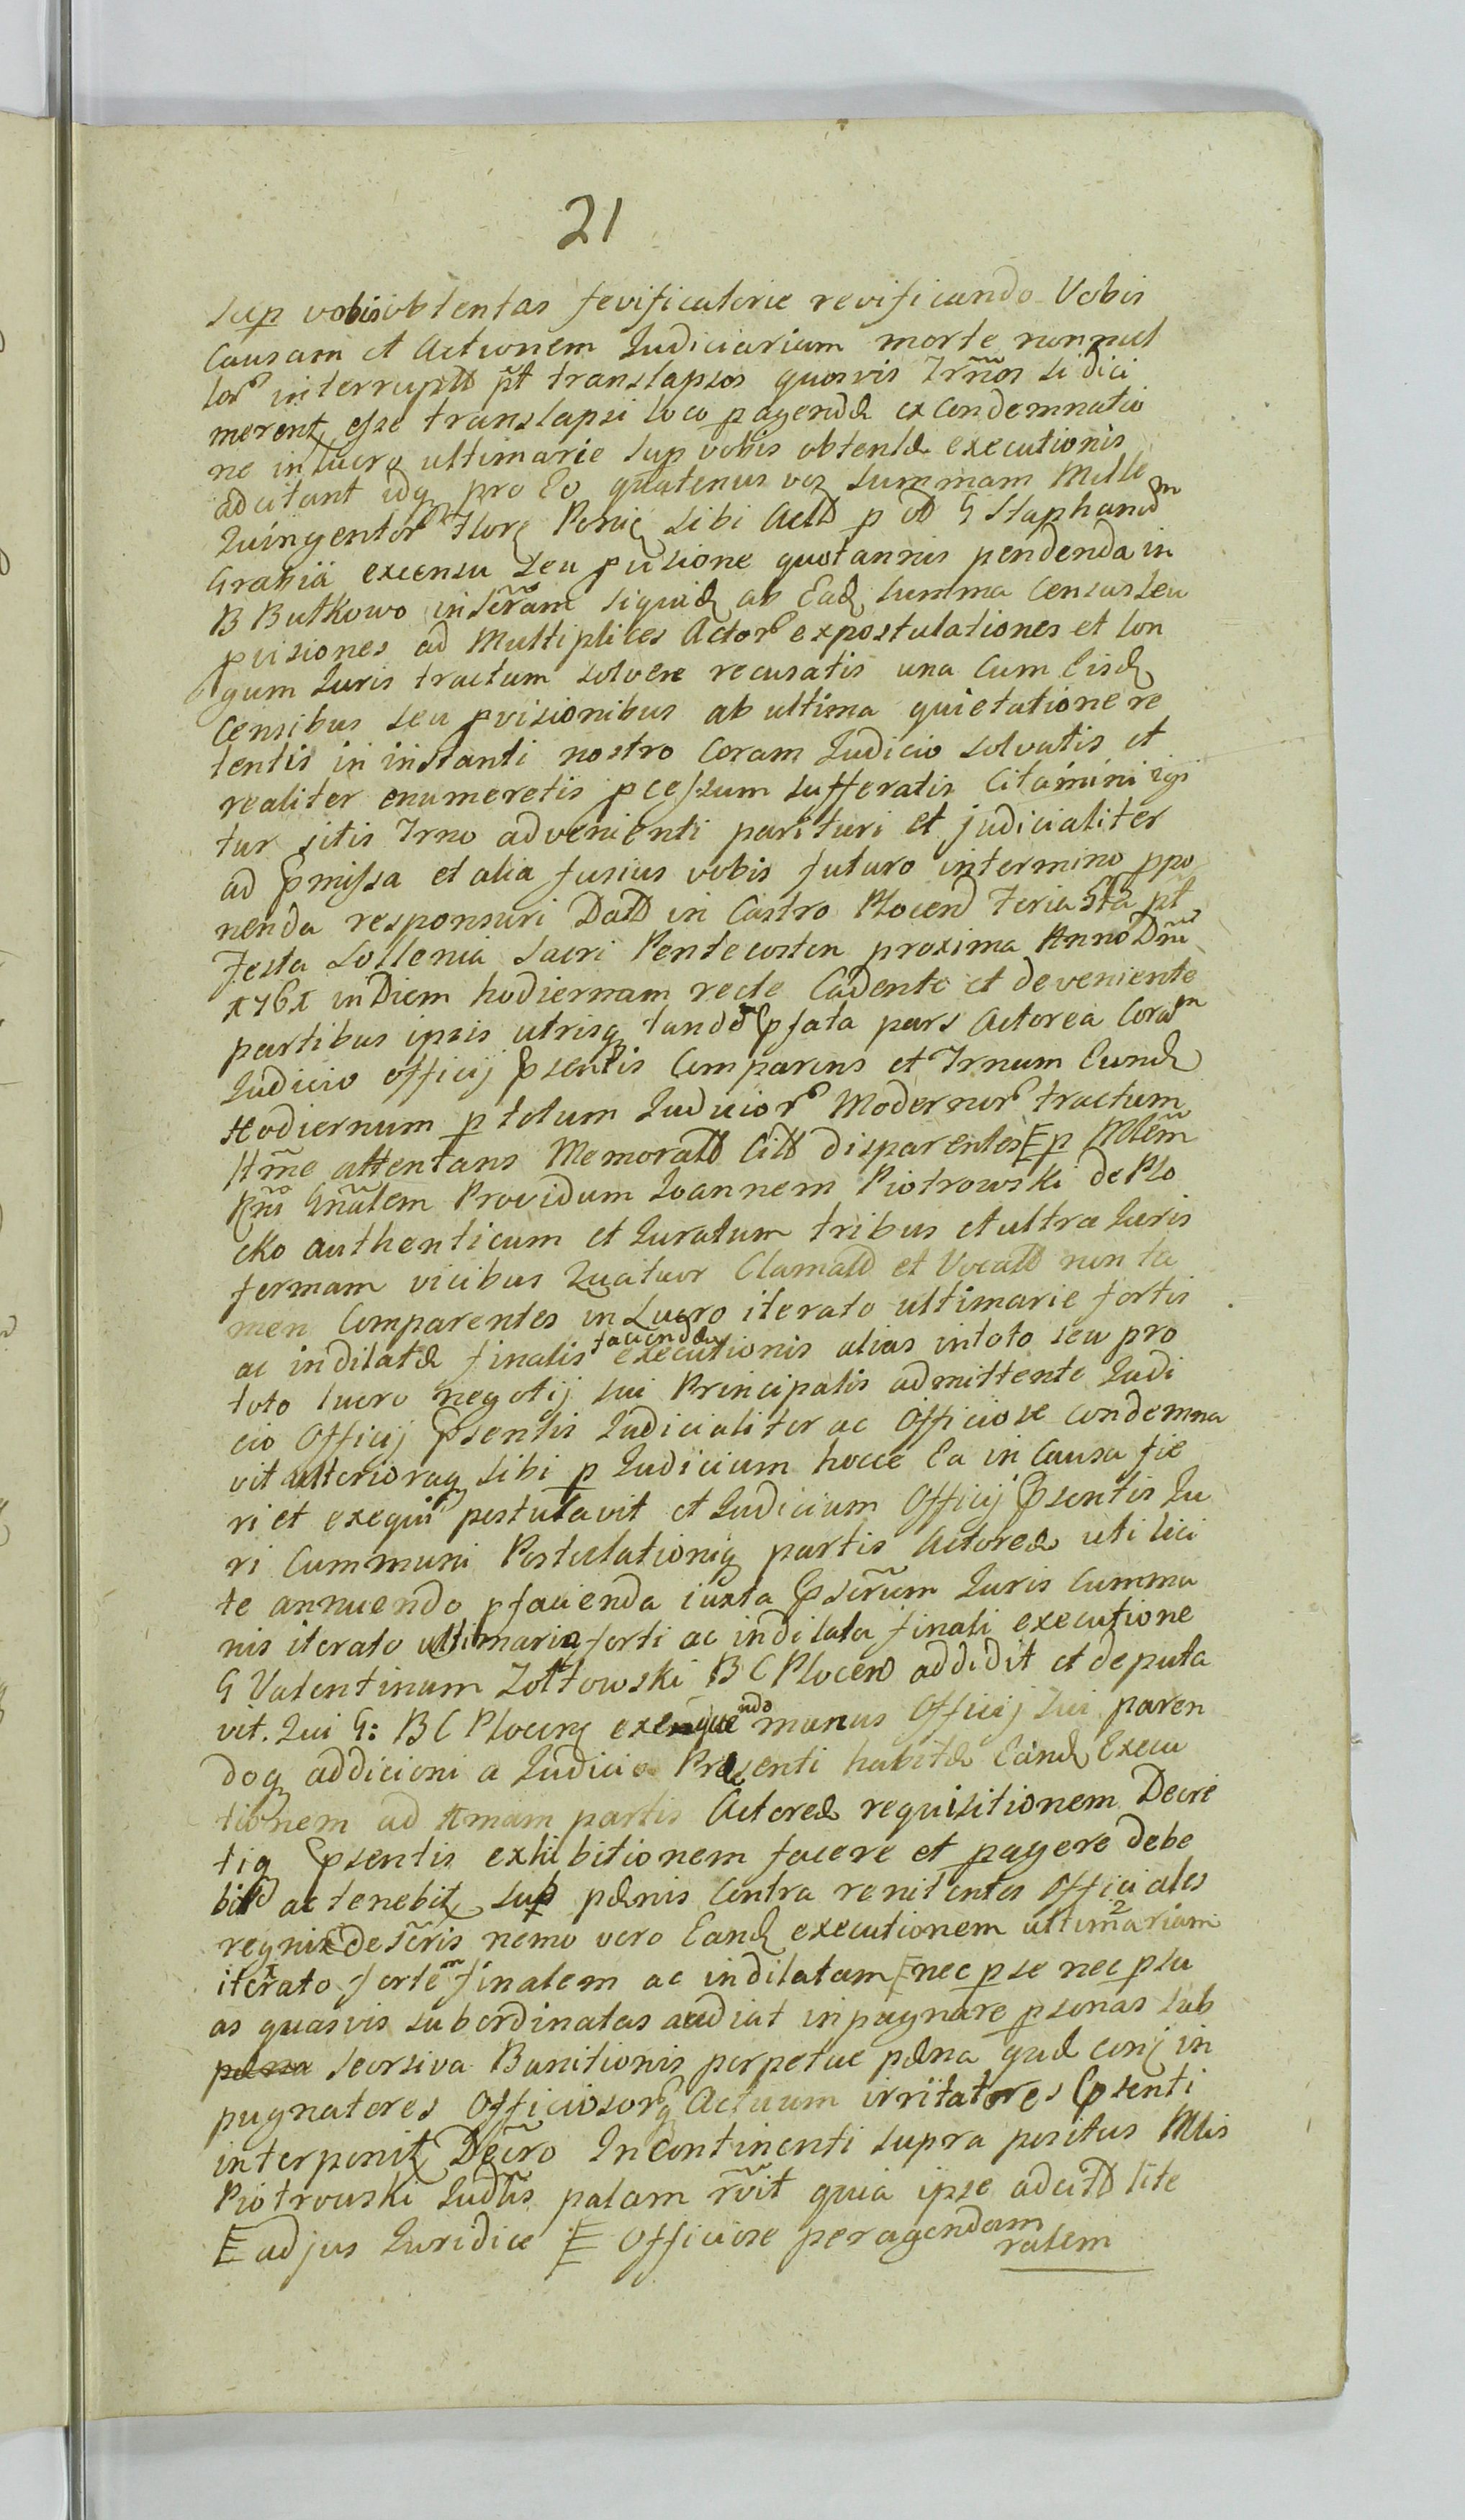 21
sup vobis obtentas fevificatorie revificando Vobis
Causam et Actionem Judiciariam morte nonnul
lor interrupta pt translapsos quosvis Trños si dici
merent esse translapsi loco pagendæ ex Condemnatio
ne in lucro ultimarie sup vobis obtentæ executionis
adcitant idq pro Eo quatenus vos summam Mille
Quingentor Flor Ponie sibi Actt p ol G Staphand m
Grabia excensu seu pvisione quotannis pendenda in
B Butkowo inscram siquid ab Ead summa Census seu
pvisiones ad Multiplices Actor expostulationes et lon
gum Juris tractum solvere recusatis una cum Eisd
Censibus seu pvisionibus ab ultima quietatione re
tentis in instanti nostro Coram Judicio solvatis et
realiter enumeretis pcessum sufferatis Citamini igi
tur sitis Trno advenienti parituri et judicialiter
ad Pmissa et alia fusius vobis futuro in termino ppo
nenda responsuri Datt in Castro Plocen Feria 5ta pt
Festa Sollenia Sacri Pentecosten proxima Anno Dni
1761 in Diem hodiernam recte Cadente et deveniente
partibus ipsis utrisq tande Pfata pars Actorea Coram
Judicio officij Psentis Comparens et Trnum Eund
Hodiernum p totum Judicior Modernor tractum
Ttme attentans Memoratt Citt disparentes E p Mlem
Rni Gnalem Providum Joannem Piotrowski de Plo
cko authenticum et Juratum tribus et ultra Juris
formam vicibus Quatuor Clamatt et Vocatt non ta
men Comparentes in Lucro iterato ultimarie fortis
ac indilatæ finalis faciendæ executionis alias in toto seu pro
toto lucro negotij sui Principalis admittente Judi
cio Officij Psentis Judicialiter ac Officiose condemna
vit ulterioraq sibi p Judicium hocce Ea in Causa fie
ri et exequi postulavit et Judicium Officij Psentis Ju
ri Communi Postulationiq partis Actoreæ uti lici
te annuendo p facienda iuxta Pscrum Juris Commu
nis iterato ultimaria forti ac indilata finali executione
G Valentinum Zołtowski B C Plocen addidit et deputa
vit. Qui G: B C Plocen exequendo munus Officij sui paren
doq addicioni a Judicio Præsenti habitæ Eand Execu
tionem ad primam partis Actoreæ requisitionem Decre
tiq Psentis exhibitionem facere et pagere debe
bit ac tenebit sub pænis Contra renitentes Officiales
regni descris nemo vero Eand executionem ultimariam
iterato fortem finalem ac indilatam E nec p se nec p su
as quasvis subordinatas audiat inpugnare psonas sub
seorsiva Banitionis perpetuæ pæna quæ in
pugnatores Officiosorq Actuum irritatores Psenti
interponit Decro Incontinenti supra positus Mlis
Piotrowski Judlis palam rvit quia ipse adcitt lite
E ad jus Juridice E Officiose peragendam
ratem